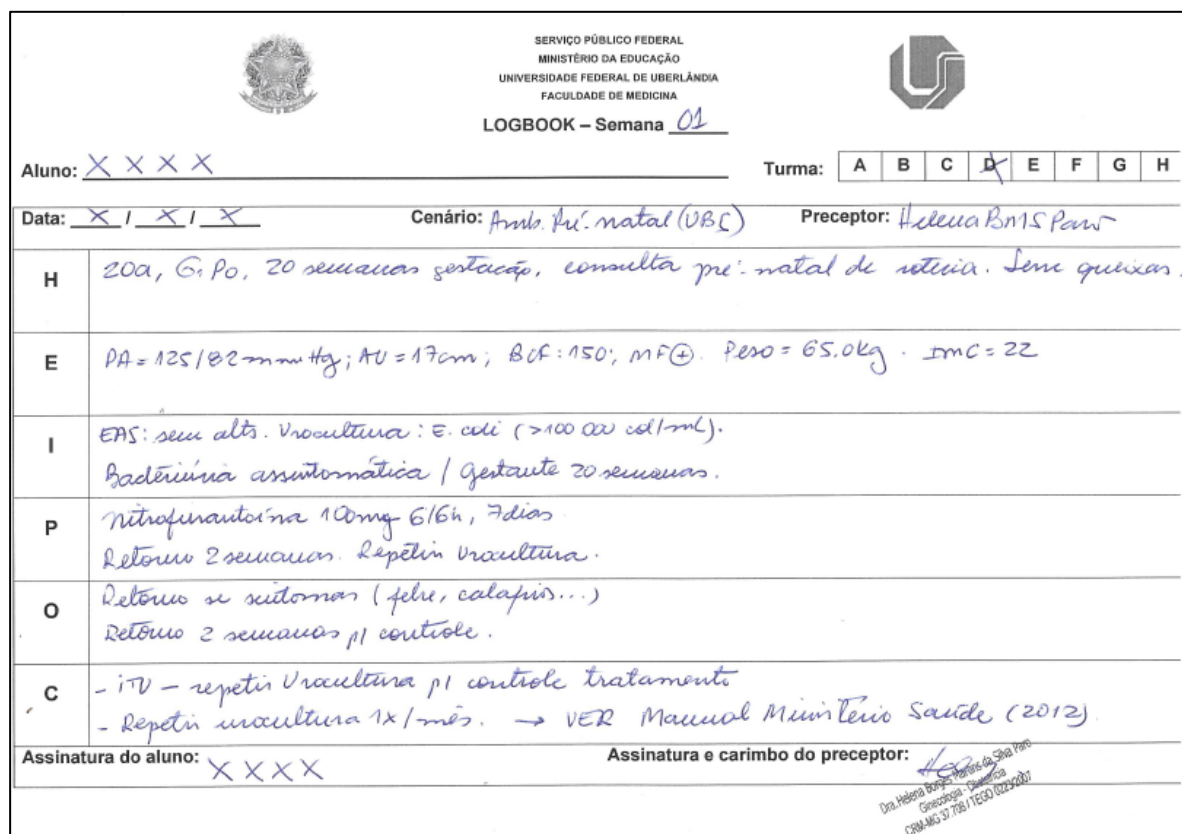 SERVIÇO PÚBLICO FEDERAL
MINISTÉRIO DA EDUCAÇÃO
UNIVERSIDADE FEDERAL DE UBERLÂNDIA
FACULDADE DE MEDICINA
LOGBOOK – Semana 01
Aluno: X X X X Turma: A B C D E F G H
Data: X / X / X Cenário: Amb. Pré-natal (UBS) Preceptor: Helena BMS Paro
H 20a, G1P0, 20 semanas gestação, consulta pré-natal de rotina. Sem queixas.
E PA = 125/82 mmHg; AU = 17cm; BCF: 150; MF ⊕. Peso = 65.0kg. IMC = 22
I EAS: sem alts. Urocultura: E. coli (>100 000 col/mL).
Bacteriúria assintomática / Gestante 20 semanas.
P Nitrofurantoína 100mg 6/6h, 7dias
Retorno 2 semanas. Repetir Urocultura.
O Retorno se sintomas (febre, calafrios...)
Retorno 2 semanas p/ controle.
C - iTU – repetir Urocultura p/ controle tratamento
- Repetir urocultura 1x/mês. → VER Manual Ministério Saúde (2012).
Assinatura do aluno: X X X X Assinatura e carimbo do preceptor:
Dra. Helena Borges Martins da Silva Paro
Ginecologia - Obstetrícia
CRM-MG 37.708 / TEGO 0223/2007